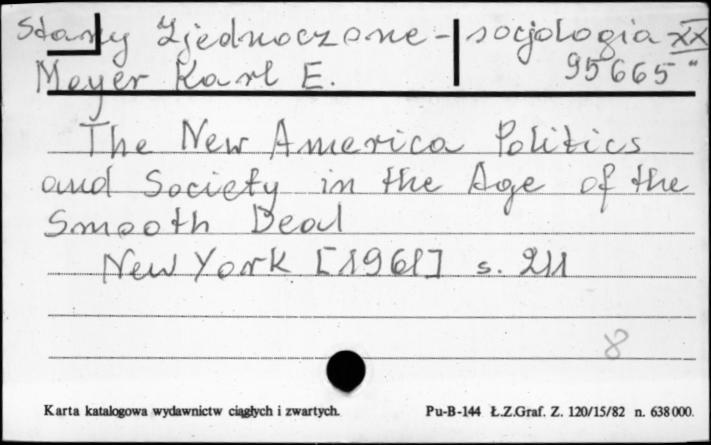 Stany Zjednoczone - socjologia XX
Meyer Karl E. 95665"
The New America Politics
and Society in the Age of the
Smooth Deal
New York [1961] s. 211
8
Karta katalogowa wydawnictw ciągłych i zwartych. Pu-B-144 Ł.Z.Graf. Z. 120/15/82 n. 638000.